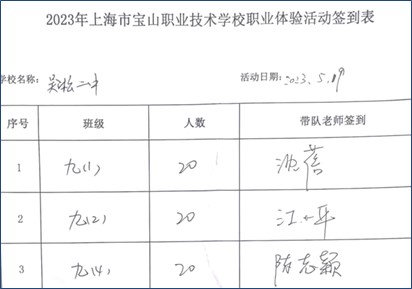 2023年上海市宝山职业技术学校职业体验活动签到表
学校名称: 吴淞二中 活动日期: 2023.5.19
序号 班级 人数 带队老师签到
1 九(1) 20 沈蓓
2 九(2) 20 江
3 九(4) 20 陈志颖